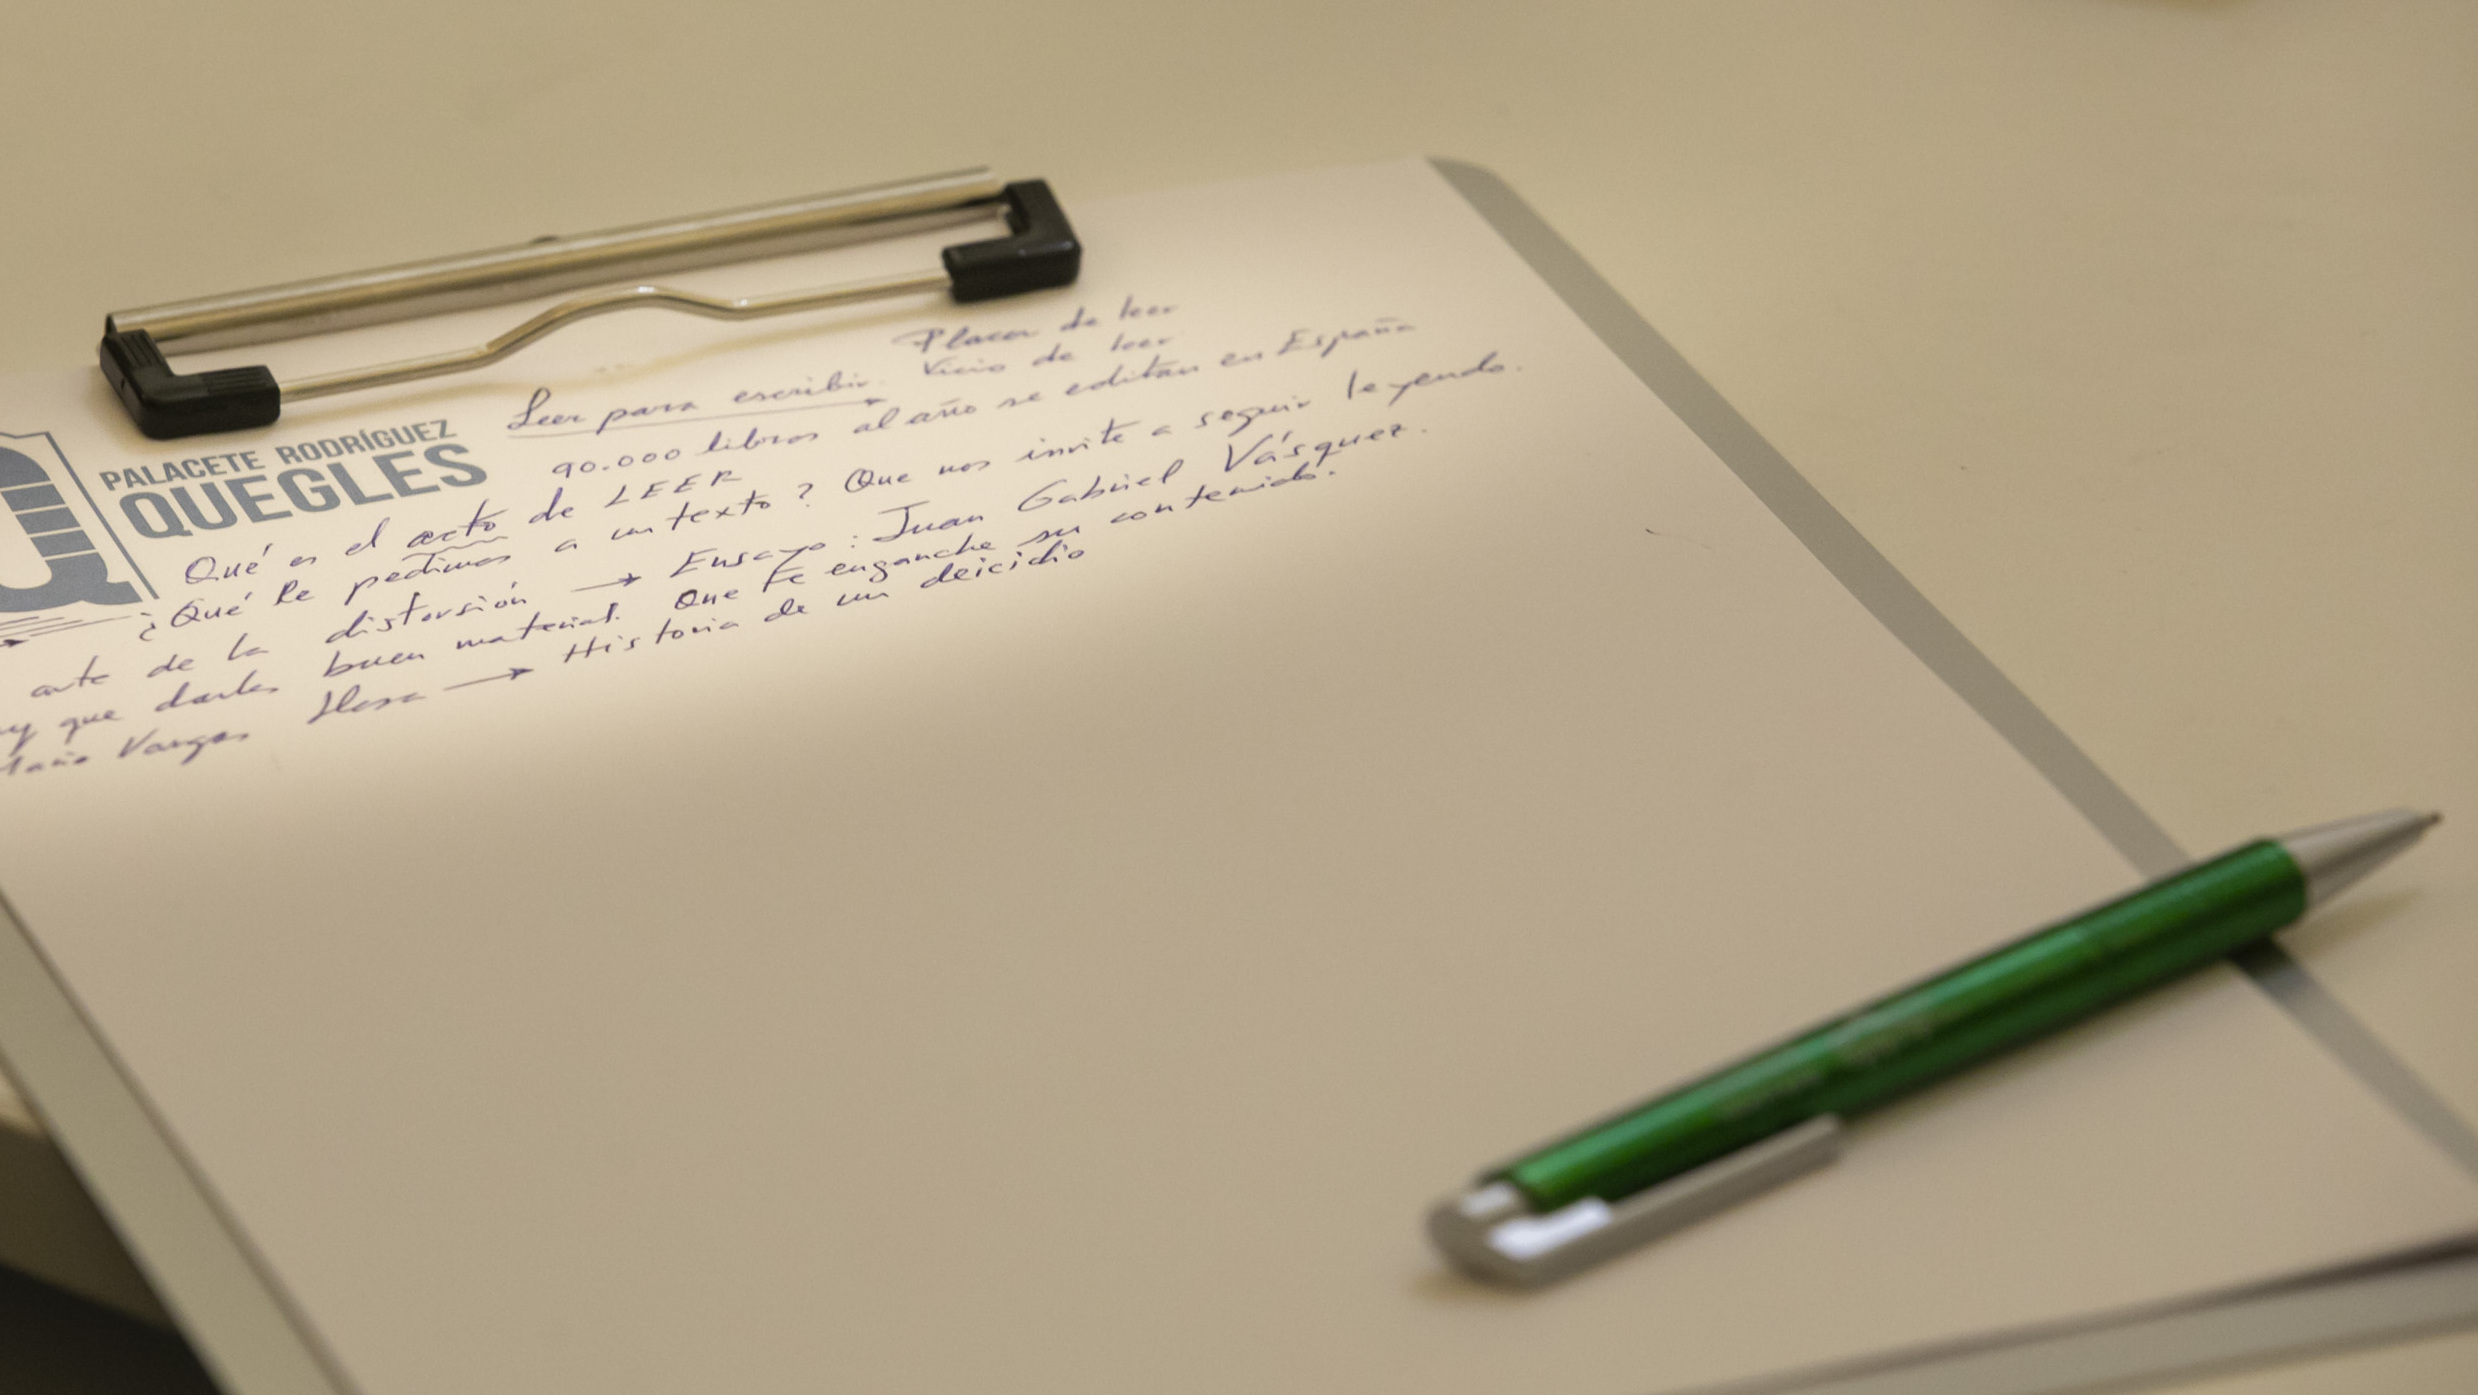 Placer de leer
Leer para escribir. Vicio de leer
90.000 libros al año se editan en España
PALACETE RODRÍGUEZ
QUEGLES
Qué es el acto de LEER
¿Qué le pedimos a un texto? Que nos invite a seguir leyendo.
arte de la distorsión → Ensayo: Juan Gabriel Vásquez.
que darles buen material. Que te enganche su contenido.
Vargas Llosa → Historia de un deicidio